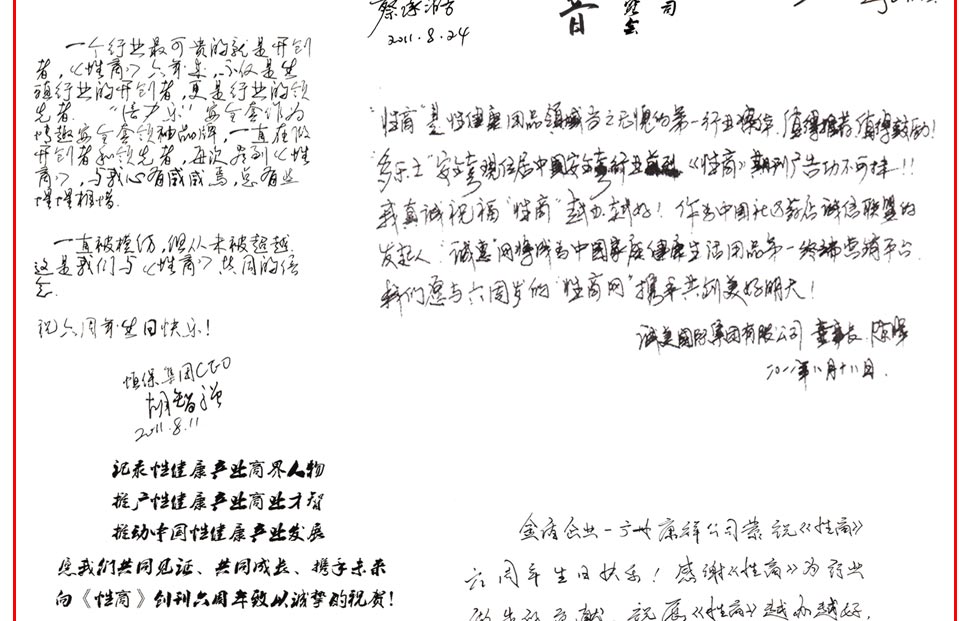 2011.8.24
一个行业最可贵的就是开创
者,《性商》六年来,不仅是生
殖行业的开创者,更是行业的领
先者. "倍力乐"安全套作为
情趣安全套领袖品牌,一直在做
开创者和领先者,每次看到《性
商》,与我心有戚戚焉,总有些
惺惺相惜.
一直被模仿,但从未被超越.
这是我们与《性商》共同的信
念.
祝六周年生日快乐!
恒保集团CEO
胡智强
2011.8.11
记录性健康产业商界人物
推产性健康产业商业才智
推动中国性健康产业发展
愿我们共同见证、共同成长、携手未来
向《性商》创刊六周年致以诚挚的祝贺!
"性商"是性健康用品领域当之无愧的第一行业媒体,值得推荐,值得鼓励!
"多乐士"安全套现位居中国安全套行业前列《性商》期刊广告功不可抹!!
我真诚祝福"性商"越办越好!作为中国社区药店诚信联盟的
发起人."诚惠"网将成为中国家庭健康生活用品第一终端营销平台.
我们愿与六周岁的"性商网"携手共创美好明天!
诚美国际集团有限公司 董事长 陈
2011年八月十八日.
企业一广州康祥公司恭祝《性商》
六周年生日快乐!感谢《性商》为药业
做出的贡献.祝愿《性商》越办越好,